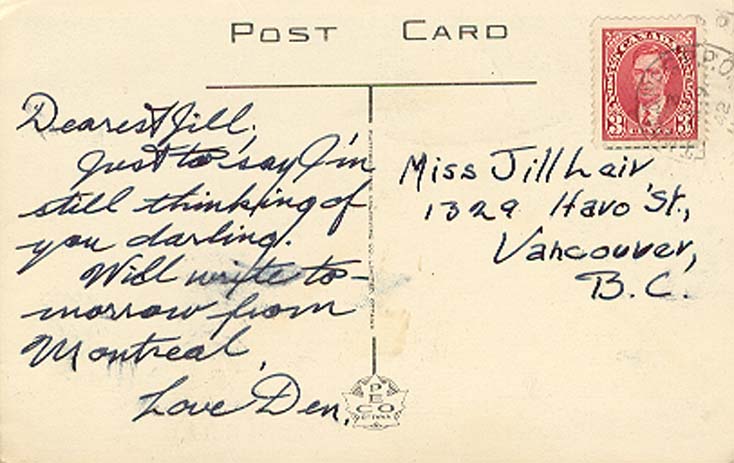 POST CARD
CANADA
3 3
Dearest Jill,
Just to say I'm
still thinking of
you darling.
Will write to-
morrow from
Montreal,
Love Den,
Miss Jill Lair
1329 Haro St.,
Vancouver,
B.C.
PECO